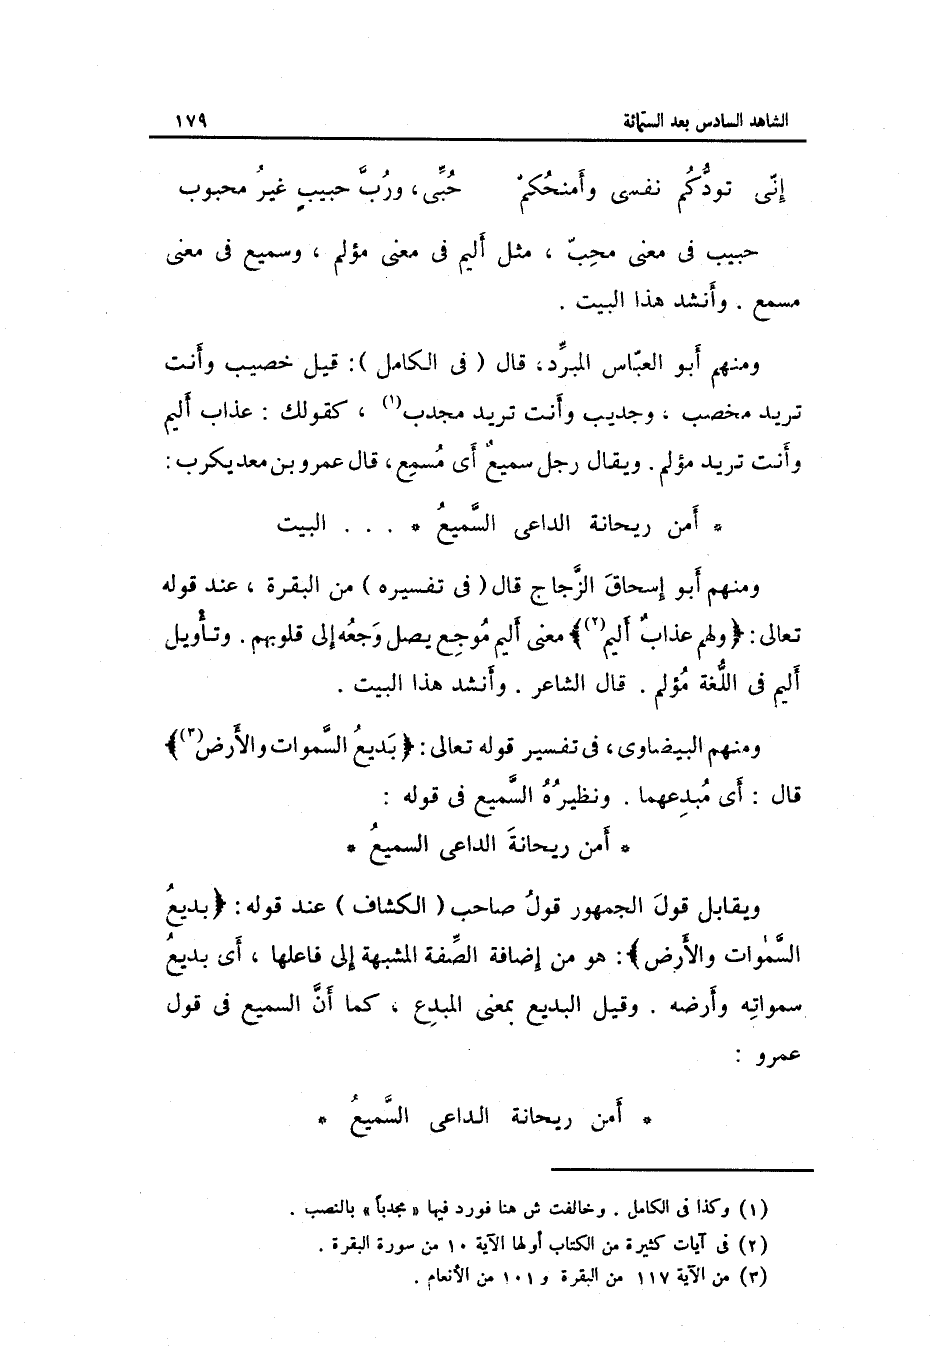 الشاهد السادس بعد الستمائة ١٧٩
إنّى تودُّكُم نفسى وأَمنحُكمْ حُبِّى، ورُبَّ حبيبٍ غيرُ محبوب
حبيب فى معنى محِبّ ، مثل أَليم فى معنى مؤلم ، وسميع فى معنى
مسمع . وأَنشد هذا البيت .
ومنهم أَبو العبّاس المبرِّد، قال ( فى الكامل ): قيل خصيب وأَنت
تريد مخصب ، وجديب وأَنت تريد مجدب(١) ، كقولك : عذاب أَليم
وأَنت تريد مؤلم. ويقال رجل سميعٌ أَى مُسمِع، قال عمرو بن معد يكرب :
* أَمن ريحانة الداعى السَّميعُ * . . . البيت
ومنهم أَبو إسحاقَ الزَّجاج قال ( فى تفسيره ) من البقرة ، عند قوله
تعالى: ﴿ولهم عذابٌ أَليم(٢)﴾ معنى أَليم مُوجِع يصل وَجَعُه إلى قلوبهم. وتأْويل
أَليم فى اللُّغة مُؤلم . قال الشاعر . وأَنشد هذا البيت .
ومنهم البيضاوى، فى تفسير قوله تعالى: ﴿بَديعُ السَّموات والأَرض(٣)﴾
قال : أَى مُبدِعهما . ونظيرُهُ السَّميع فى قوله :
* أَمن ريحانةَ الداعى السميعُ *
ويقابل قولَ الجمهور قولُ صاحب ( الكشاف ) عند قوله : ﴿بديعُ
السَّمٰوات والأَرض﴾: هو من إضافة الصِّفة المشبهة إلى فاعلها ، أَى بديعُ
سمواتِه وأَرضه . وقيل البديع بمعنى المبدِع ، كما أَنَّ السميع فى قول
عمرو :
* أَمن ريحانة الداعى السَّميعُ *
(١) وكذا فى الكامل . وخالفت ش هنا فورد فيها « مجدباً » بالنصب .
(٢) فى آيات كثيرة من الكتاب أولها الآية ١٠ من سورة البقرة .
(٣) من الآية ١١٧ من البقرة و ١٠١ من الأنعام .